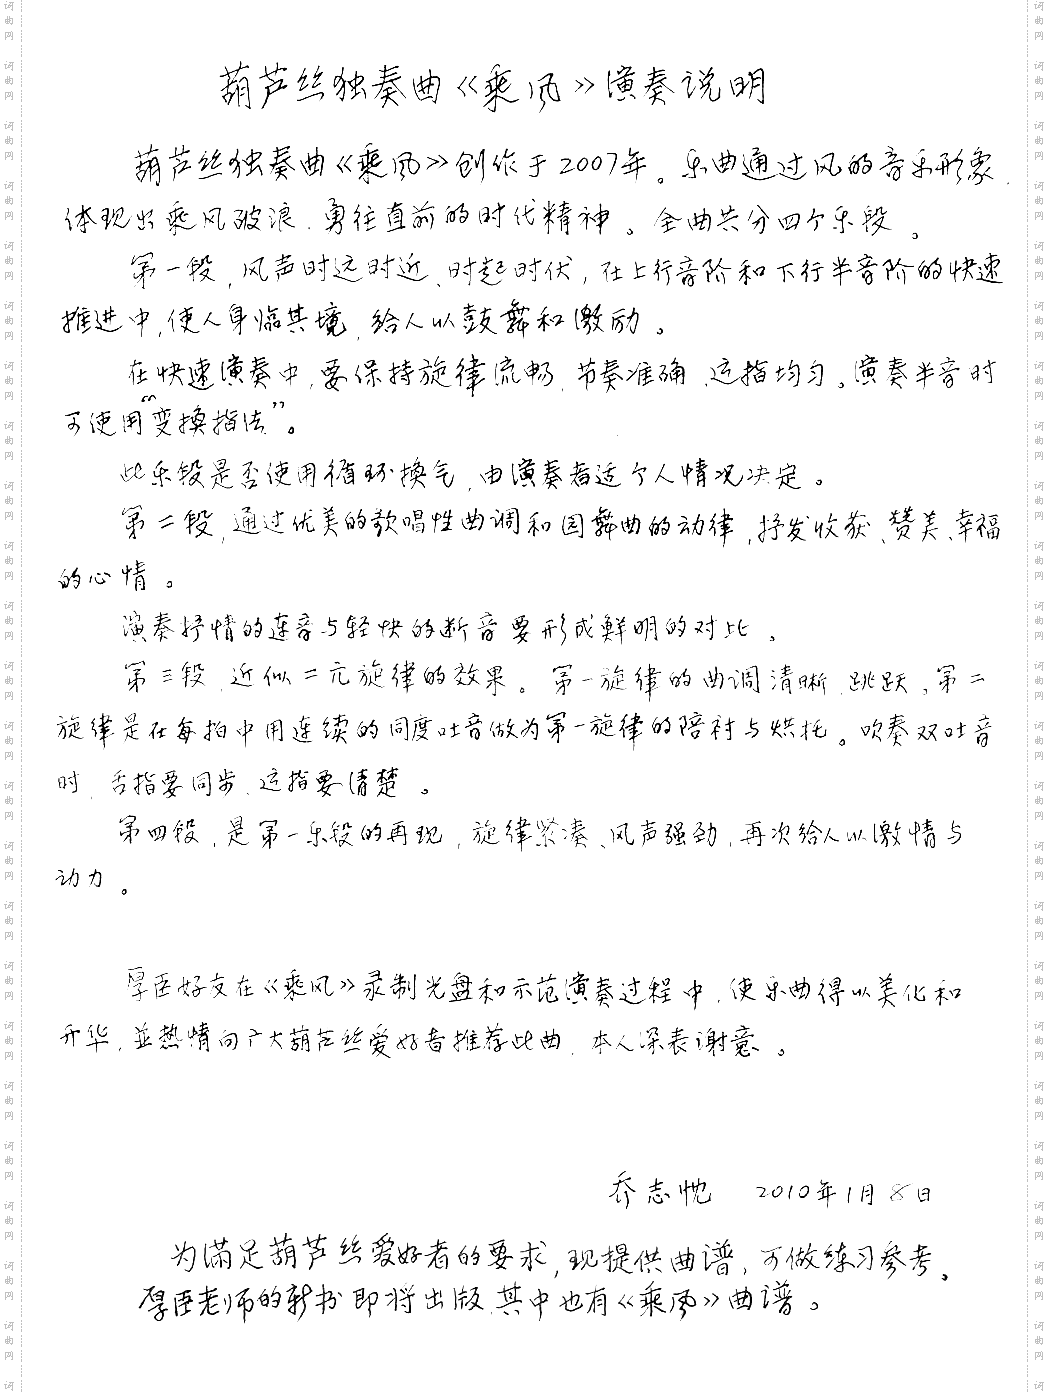 葫芦丝独奏曲《乘风》演奏说明
葫芦丝独奏曲《乘风》创作于2007年。乐曲通过风的音乐形象,
体现出乘风破浪、勇往直前的时代精神。全曲共分四个乐段。
第一段,风声时远时近、时起时伏,在上行音阶和下行半音阶的快速
推进中,使人身临其境,给人以鼓舞和激励。
在快速演奏中,要保持旋律流畅、节奏准确、运指均匀。演奏半音时
可使用“变换指法”。
此乐段是否使用循环换气,由演奏者适个人情况决定。
第二段,通过优美的歌唱性曲调和园舞曲的动律,抒发收获、赞美、幸福
的心情。
演奏抒情的连音与轻快的断音要形成鲜明的对比。
第三段,近似二元旋律的效果。第一旋律的曲调清晰、跳跃,第二
旋律是在每拍中用连续的同度吐音做为第一旋律的陪衬与烘托。吹奏双吐音
时,舌指要同步,运指要清楚。
第四段,是第一乐段的再现,旋律紧凑、风声强劲,再次给人以激情与
动力。
厚臣好友在《乘风》录制光盘和示范演奏过程中,使乐曲得以美化和
升华,並热情向广大葫芦丝爱好者推荐此曲,本人深表谢意。
乔志忱 2010年1月8日
为满足葫芦丝爱好者的要求,现提供曲谱,可做练习参考。
厚臣老师的新书即将出版,其中也有《乘风》曲谱。
词曲网